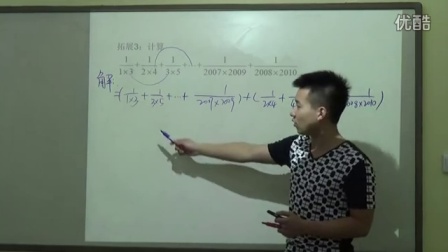 优酷
拓展3：计算
1/1×3 + 1/2×4 + 1/3×5 + … + 1/2007×2009 + 1/2008×2010
解：=( 1/1×3 + 1/3×5 + ⋯ + 1/2007×2009 ) + ( 1/2×4 + 1/4 2008×2010 )